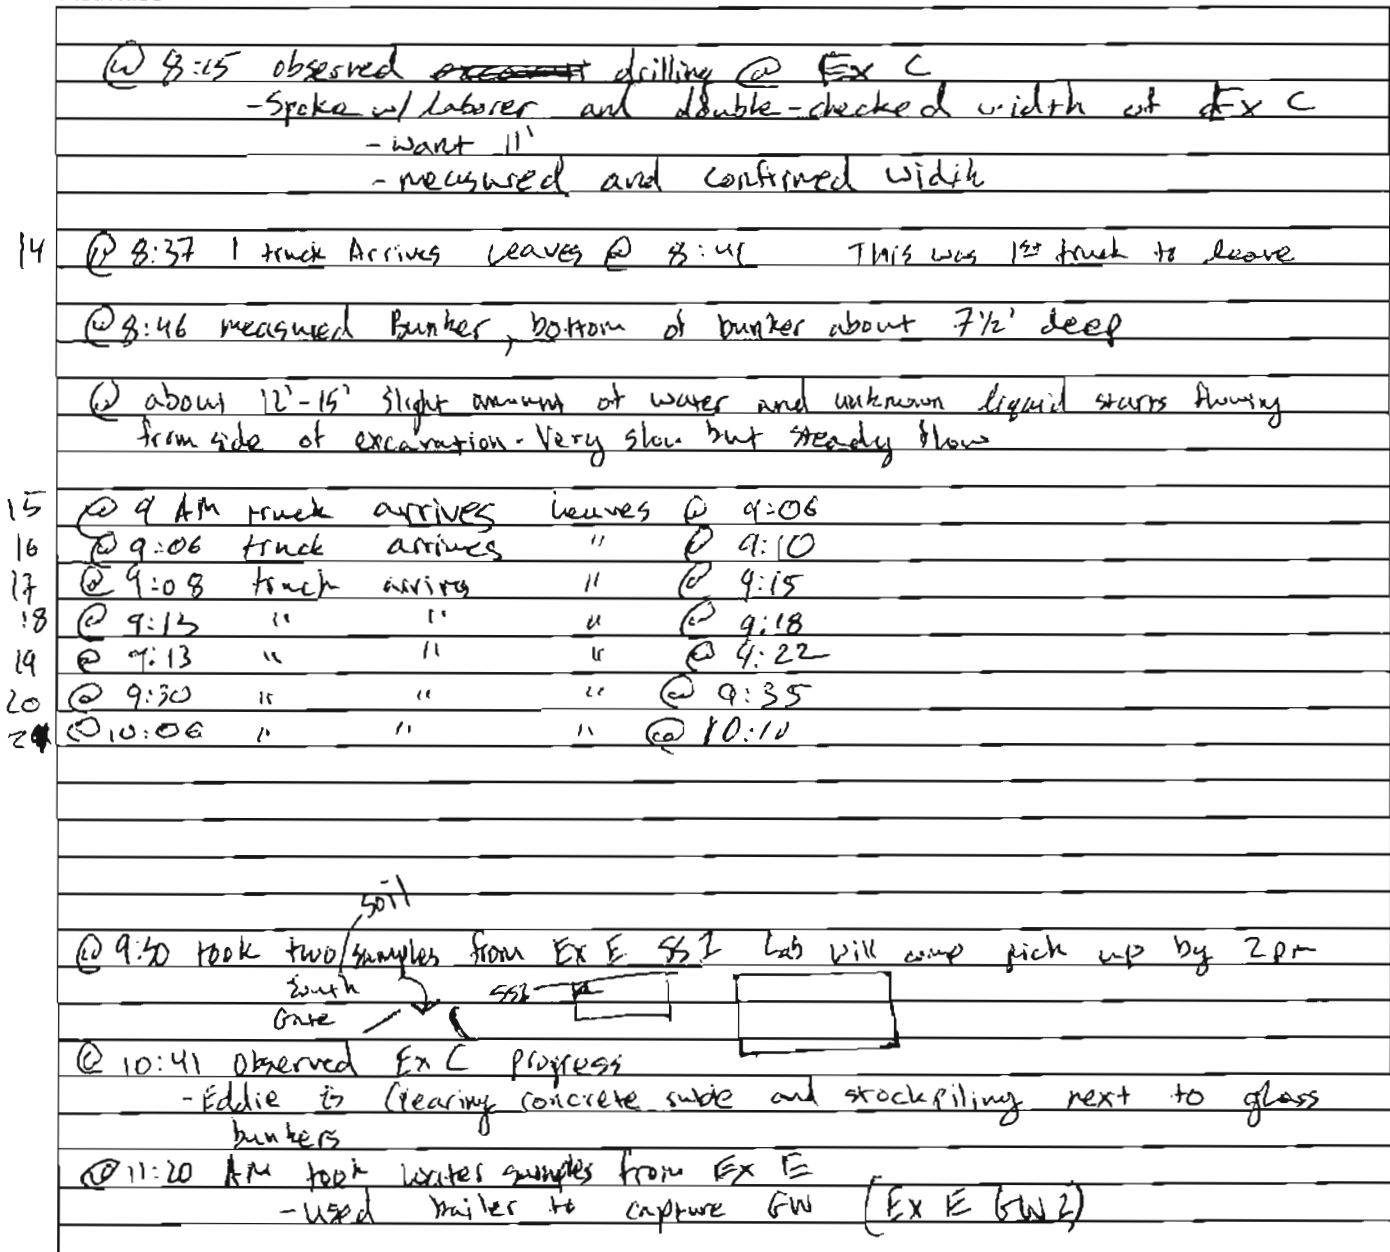 @ 8:15 observed drilling @ Ex C
- Spoke w/ laborer and double-checked width of Ex C
- want 11'
- measured and confirmed width
14 @ 8:37 1 truck Arrives Leaves @ 8:41 This was 1st truck to leave
@ 8:46 measured Bunker, bottom of bunker about 7 1/2' deep
@ about 12'-15' slight amount of water and unknown liquid starts flowing
from side of excavation - Very slow but steady flow
15 @ 9 AM truck arrives leaves @ 9:06
16 @ 9:06 truck arrives " @ 9:10
17 @ 9:08 truck arrives " @ 9:15
18 @ 9:13 " " " @ 9:18
19 @ 9:13 " " " @ 9:22
20 @ 9:30 " " " @ 9:35
@ 10:06 " " " @ 10:10
soil
@ 9:50 took two samples from Ex E SS1 Lab will come pick up by 2 pm
South SS1
Gate
@ 10:41 Observed Ex C progress
- Eddie is clearing concrete and stockpiling next to glass
bunkers
@ 11:20 AM took water samples from Ex E
- used bailer to capture GW (Ex E GW2)